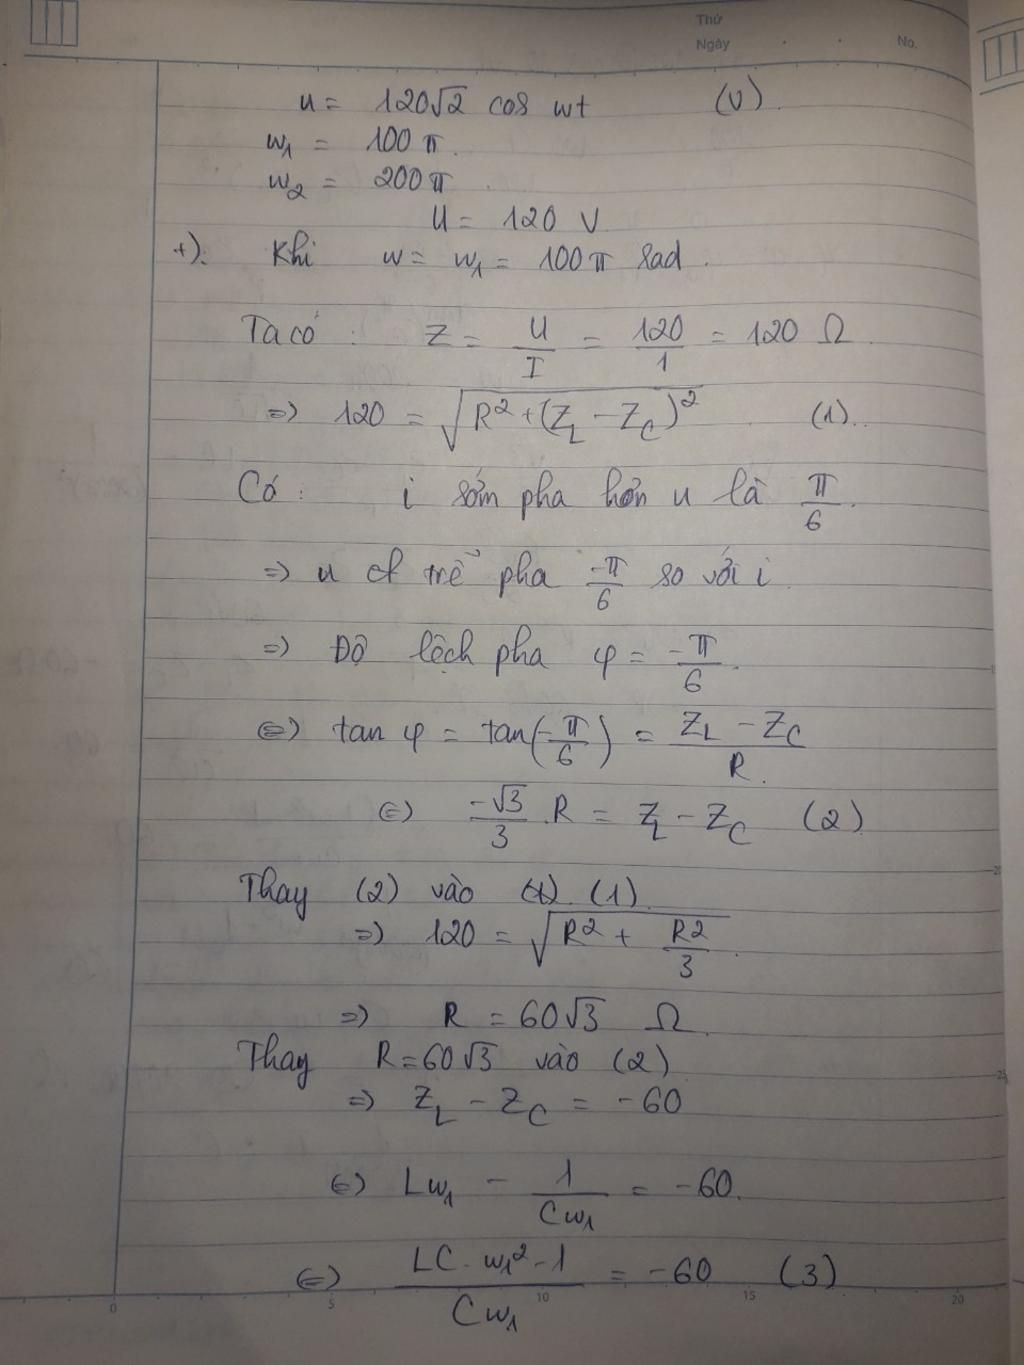 Thứ
Ngày . . No.
u = 120√2 cos wt (V).
w₁ = 100π.
w₂ = 200π.
U = 120 V
+). Khi w = w₁ = 100π rad.
Ta có : Z = U/I = 120/1 = 120 Ω.
=> 120 = √(R² + (Z_L - Z_C)²) (1)..
Có : i sớm pha hơn u là π/6.
=> u trễ pha -π/6 so với i.
=> Độ lệch pha φ = -π/6.
<=> tan φ = tan(-π/6) = (Z_L - Z_C)/R.
<=> -√3/3 . R = Z_L - Z_C (2)
Thay (2) vào (1).
=> 120 = √(R² + R²/3).
=> R = 60√3 Ω.
Thay R = 60√3 vào (2)
=> Z_L - Z_C = -60
<=> Lw₁ - 1/(Cw₁) = -60.
<=> (LC . w₁² - 1)/(Cw₁) = -60 (3)
0 5 10 15 20